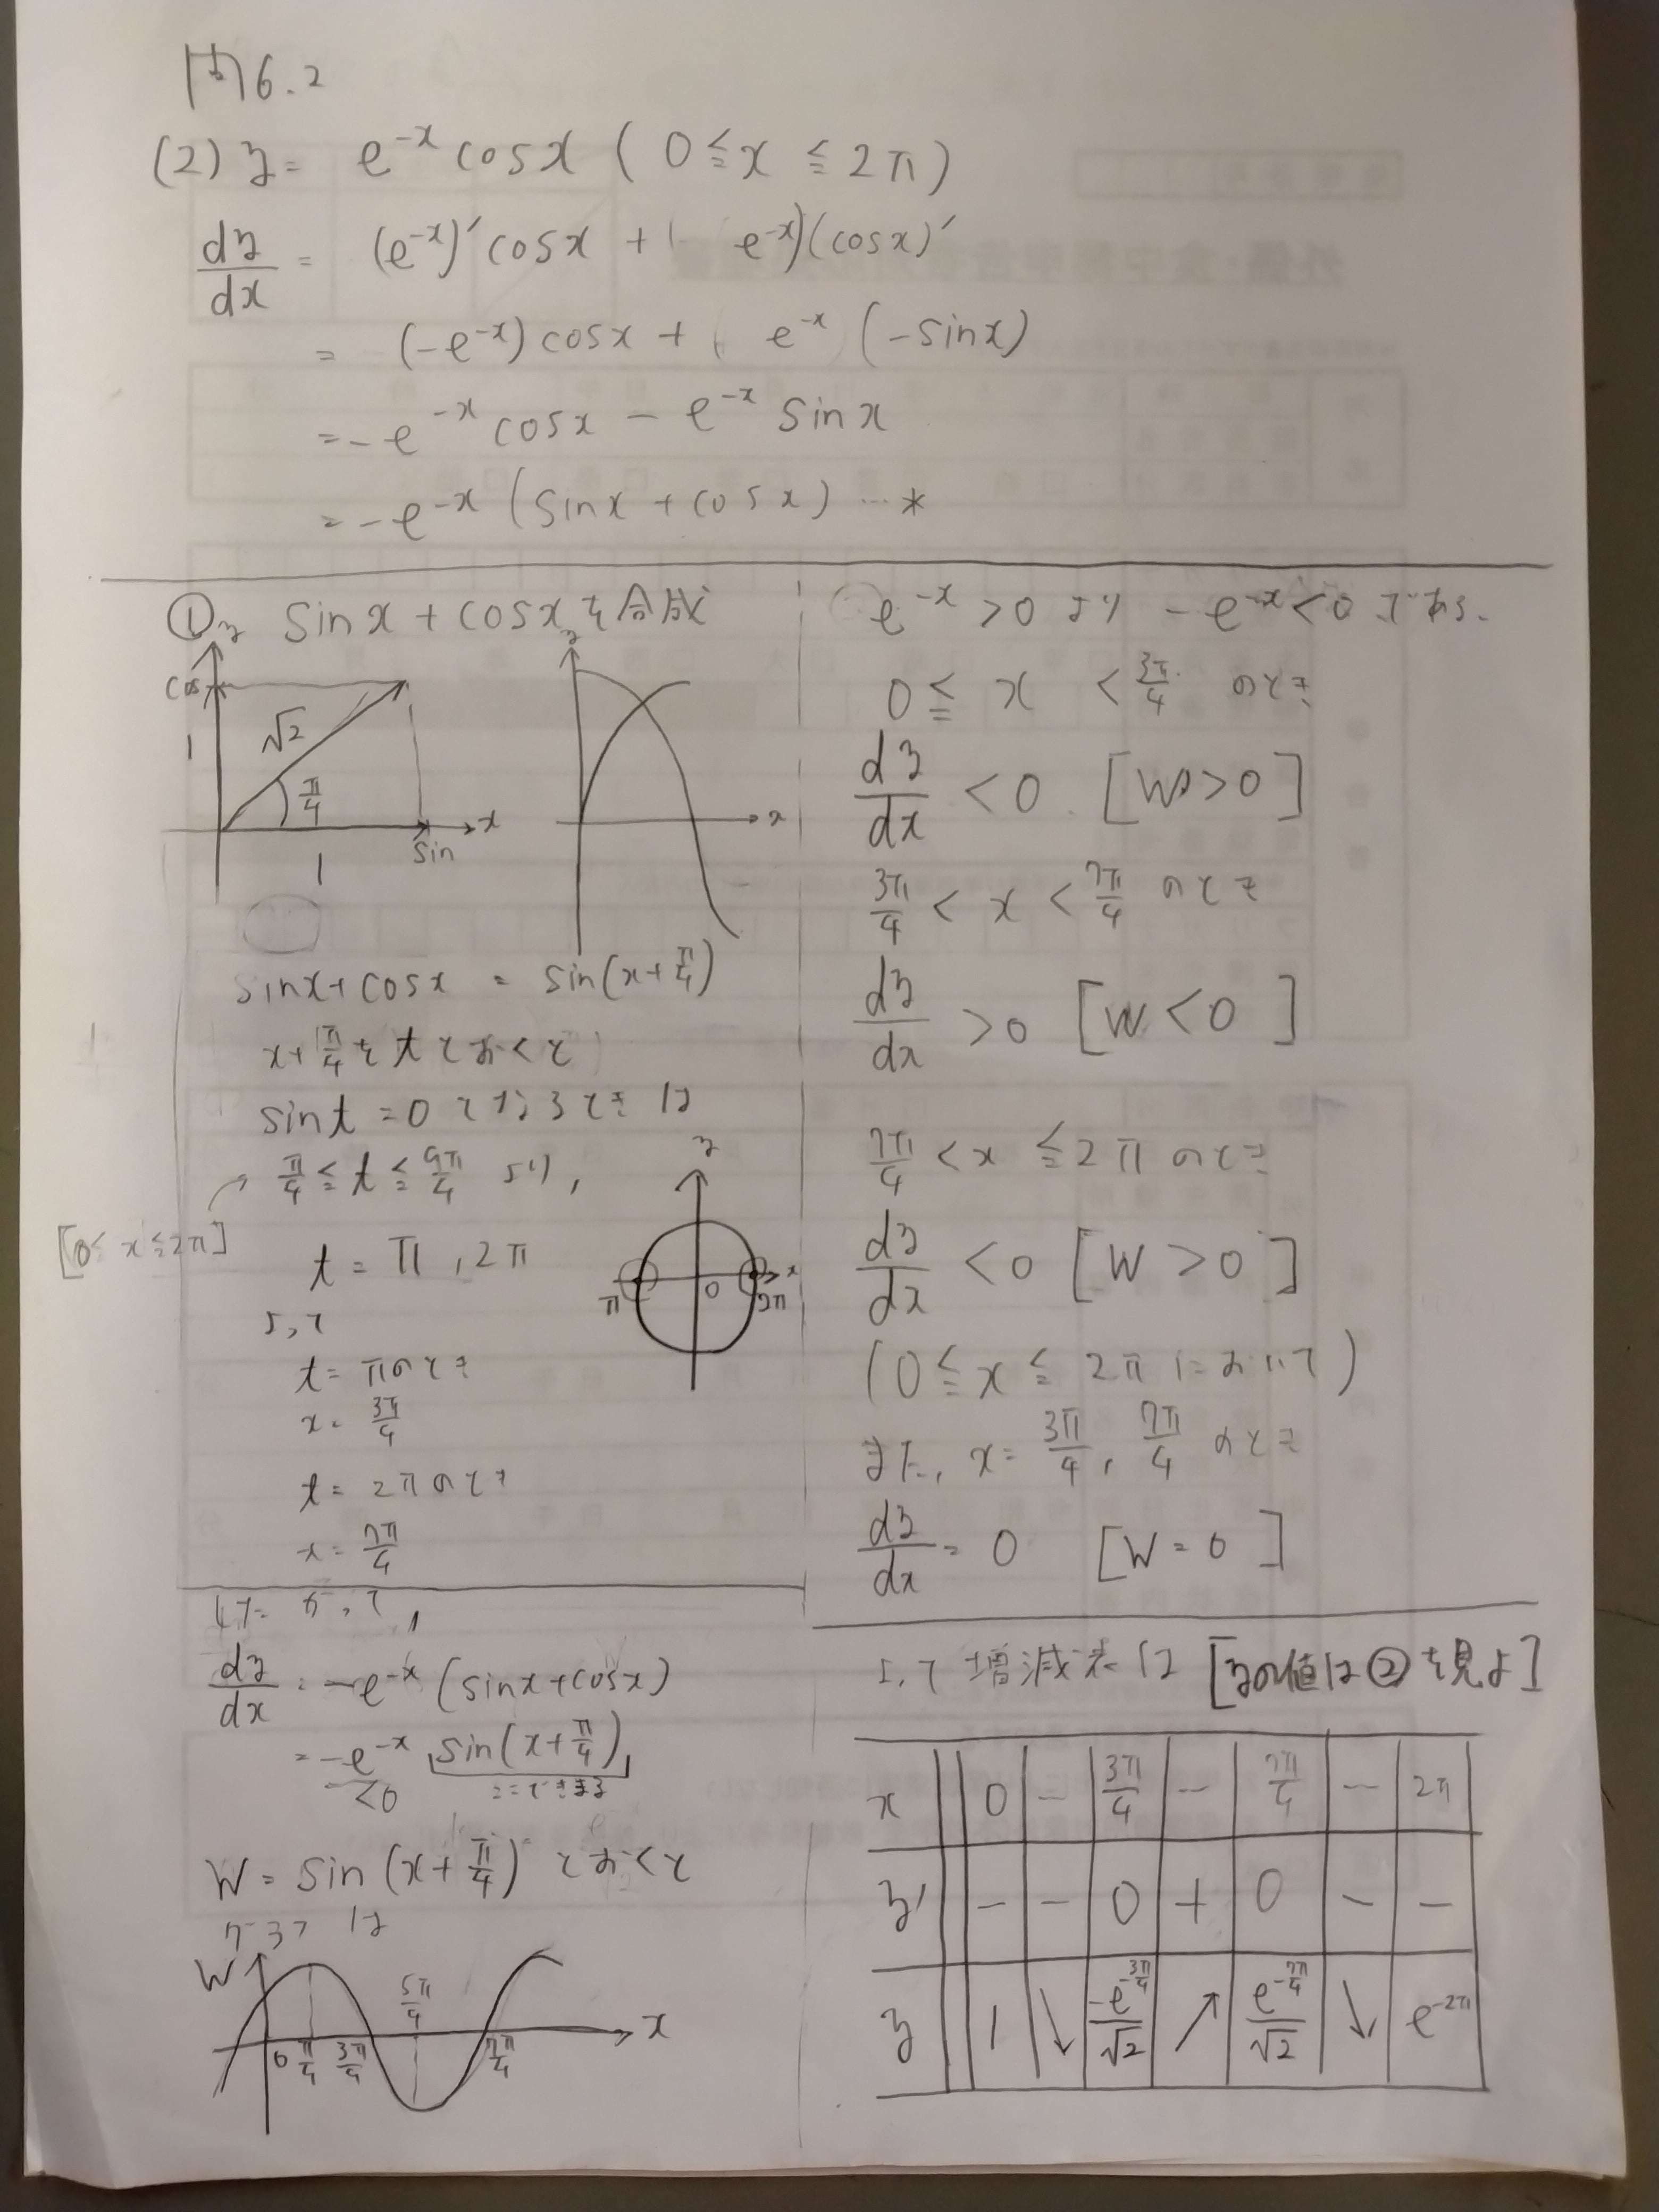 問6.2
(2) y = e^{-x} cosx ( 0 ≦ x ≦ 2π )
dy/dx = (e^{-x})' cosx + ( e^{-x})(cosx)'
= (-e^{-x}) cosx + ( e^{-x} (-sinx)
= -e^{-x} cosx - e^{-x} sinx
= -e^{-x} (sinx + cosx) … *
① sinx + cosx を合成
y
cos
1
√2
π/4
1
sin
x
y
x
sinx+cosx = sin(x+π/4)
x+π/4をtとおくと
sint = 0 となるときは
π/4 ≦ t ≦ 9π/4 より,
[0≦x≦2π]
t = π, 2π
y
x
π
0
2π
よって
t = πのとき
x = 3π/4
t = 2πのとき
x = 7π/4
したがって,
dy/dx = -e^{-x} (sinx+cosx)
= -e^{-x} sin(x+π/4)
<0 ここできまる
W = sin(x+π/4) とおくと
グラフは
W
0 π/4 3π/4 5π/4 7π/4 x
e^{-x} > 0 より -e^{-x} < 0 である.
0 ≦ x < 3π/4 のとき
dy/dx < 0 [W > 0]
3π/4 < x < 7π/4 のとき
dy/dx > 0 [W < 0]
7π/4 < x ≦ 2π のとき
dy/dx < 0 [W > 0]
(0 ≦ x ≦ 2π において)
また, x = 3π/4, 7π/4 のとき
dy/dx = 0 [W = 0]
よって増減表は [yの値は②を見よ]
x 0 … 3π/4 … 7π/4 … 2π
y' - - 0 + 0 - -
y 1 ↘ -e^{-3π/4}/√2 ↗ e^{-7π/4}/√2 ↘ e^{-2π}